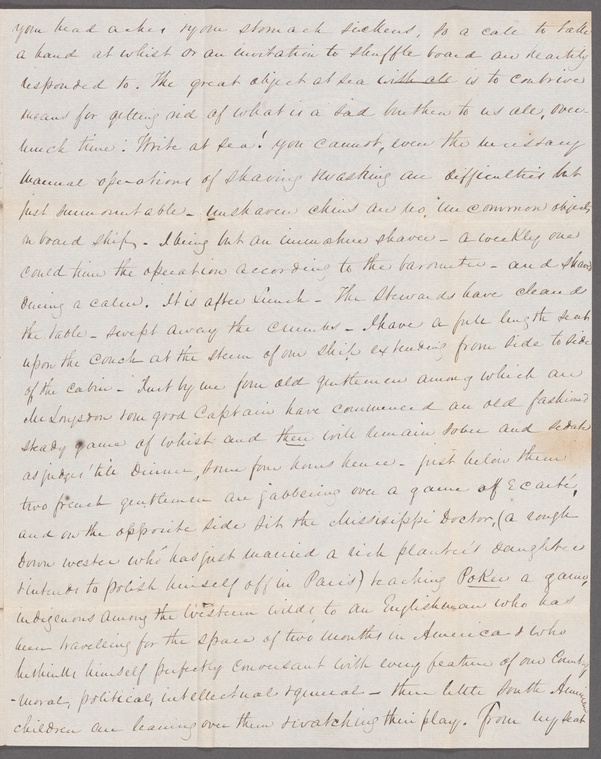 your head aches & your stomach sickens, so a call to take
a hand at whist or an invitation to shuffle board are heartily
responded to. The great object at sea with all is to contrive
means for getting rid of what is a sad burthen to us all, over
much time! Write at sea! you cannot, even the necessary
manual operations of shaving & washing are difficulties but
just surmountable - unshaven chins are no "uncommon objects
on board ship - I being but an immature shaver - a weekly one
could time the operation according to the barometer - and shave
during a calm. It is after Lunch - The Stewards have cleaned
the table - swept away the crumbs - I have a full length seat
upon the couch at the stern of our ship extending from side to side
of the cabin - Just by me four old gentlemen among which are
Mr Longsdon & our good Captain have commenced an old fashioned
steady game of whist and there will remain sober and sedate
as judges 'till Dinner, some four hours hence - just below them
two french gentlemen are jabbering over a game of Ecarté,
and on the opposite side sits the Missisippi Doctor, (a rough
down wester who has just married a rich planter's daughter
& intends to polish himself off in Paris) teaching Poker a game,
indigenous among the Western wilds to an Englishman who has
been travelling for the space of two months in America & who
bethinks himself perfectly conversant with every feature of our Country
-moral, political, intellectual & general - three little South American
children are leaning over them & watching their play. From my seat